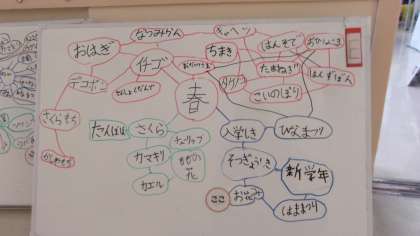 なつみかん
キャベツ
おはぎ
イチゴ
ちまき
はんそで
たけのこ
たまねぎ
はんずぼん
デコポン
春
こいのぼり
さくらもち
たんぽぽ
さくら
チューリップ
入学しき
ひなまつり
カマキリ
なのの
花
そつぎょうしき
新学年
カエル
ここ
お花み
はままつり